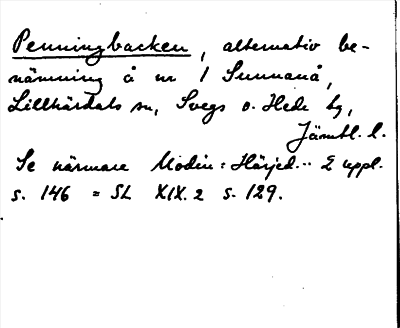 Penningbacken, alternativ be-
nämning å nr 1 Sunnanå,
Lillhärdals sn, Svegs o. Hede tg,
Jämtl. l.
Se närmare Modin: Härjed... 2 uppl.
s. 146 = SL XIX. 2 s. 129.